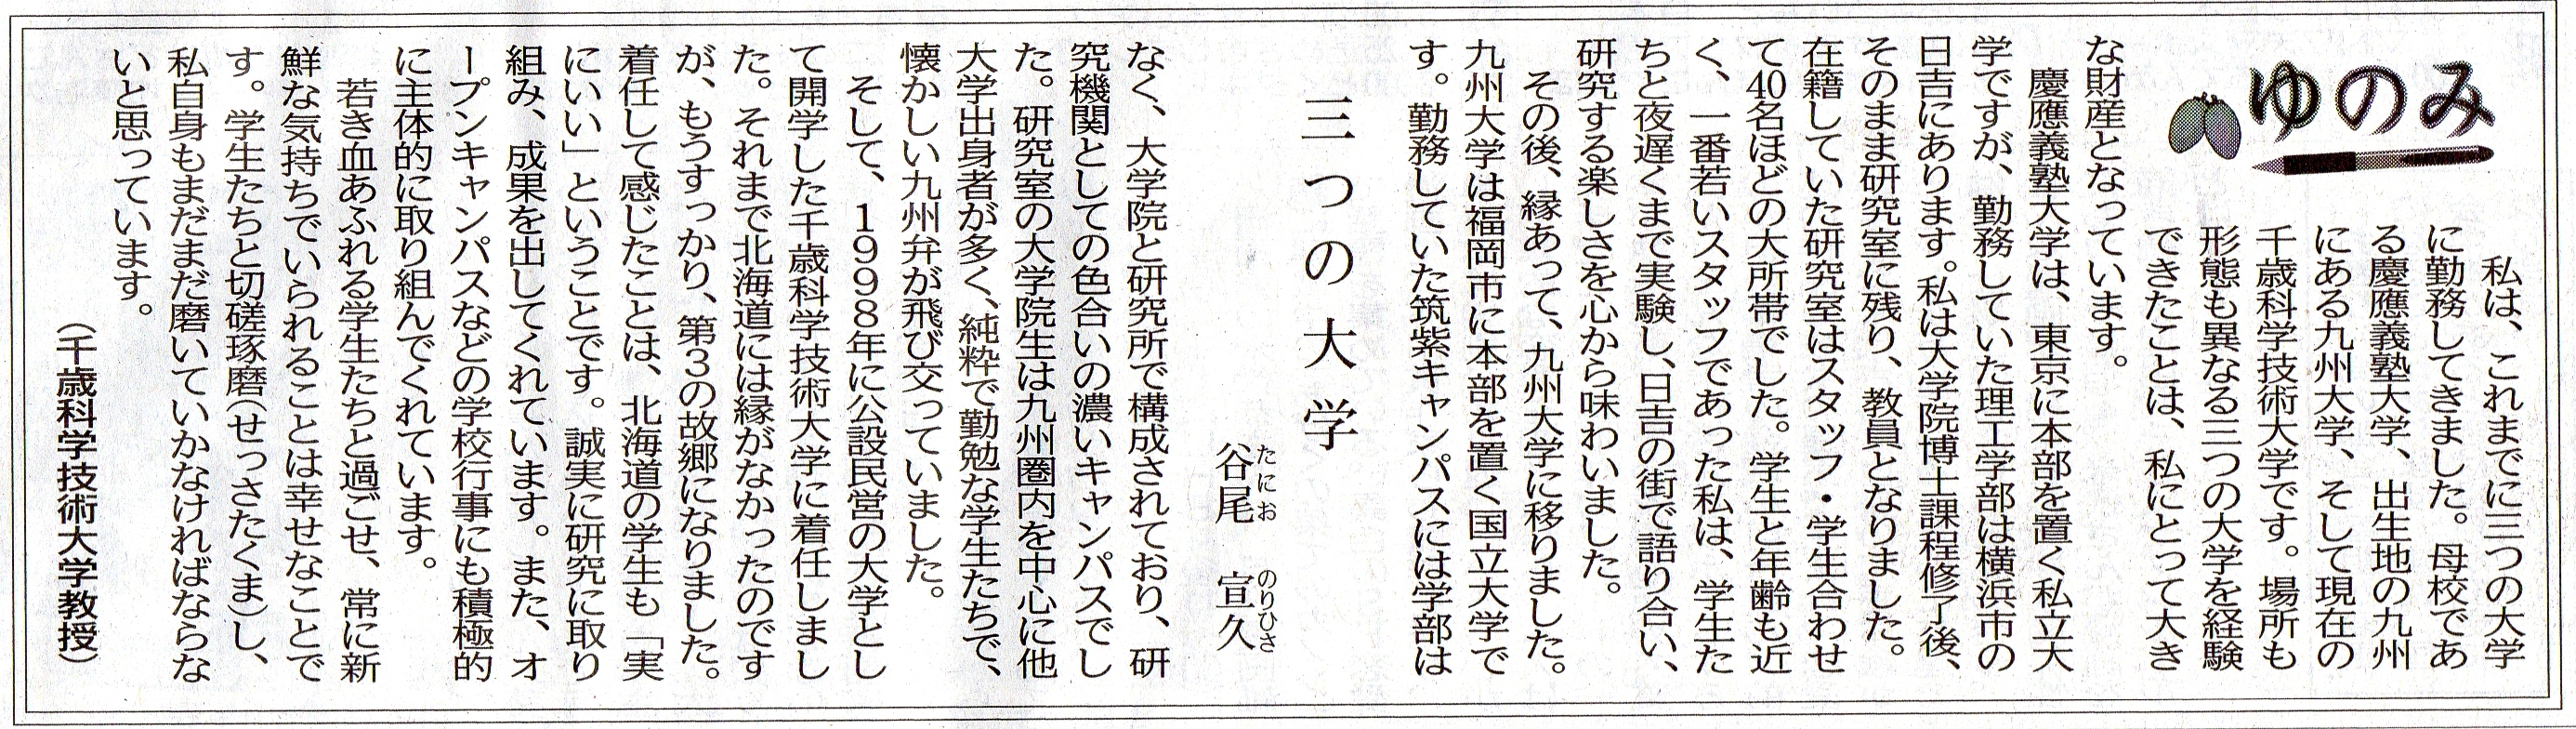 ゆのみ
私は、これまでに三つの大学
に勤務してきました。母校であ
る慶應義塾大学、出生地の九州
にある九州大学、そして現在の
千歳科学技術大学です。場所も
形態も異なる三つの大学を経験
できたことは、私にとって大き
な財産となっています。
慶應義塾大学は、東京に本部を置く私立大
学ですが、勤務していた理工学部は横浜市の
日吉にあります。私は大学院博士課程修了後、
そのまま研究室に残り、教員となりました。
在籍していた研究室はスタッフ・学生合わせ
て40名ほどの大所帯でした。学生と年齢も近
く、一番若いスタッフであった私は、学生た
ちと夜遅くまで実験し、日吉の街で語り合い、
研究する楽しさを心から味わいました。
その後、縁あって、九州大学に移りました。
九州大学は福岡市に本部を置く国立大学で
す。勤務していた筑紫キャンパスには学部は
三つの大学
谷尾 宣久
たにお のりひさ
なく、大学院と研究所で構成されており、研
究機関としての色合いの濃いキャンパスでし
た。研究室の大学院生は九州圏内を中心に他
大学出身者が多く、純粋で勤勉な学生たちで、
懐かしい九州弁が飛び交っていました。
そして、1998年に公設民営の大学とし
て開学した千歳科学技術大学に着任しまし
た。それまで北海道には縁がなかったのです
が、もうすっかり、第3の故郷になりました。
着任して感じたことは、北海道の学生も「実
にいい」ということです。誠実に研究に取り
組み、成果を出してくれています。また、オ
ープンキャンパスなどの学校行事にも積極的
に主体的に取り組んでくれています。
若き血あふれる学生たちと過ごせ、常に新
鮮な気持ちでいられることは幸せなことで
す。学生たちと切磋琢磨(せっさたくま)し、
私自身もまだまだ磨いていかなければならな
いと思っています。
(千歳科学技術大学教授)